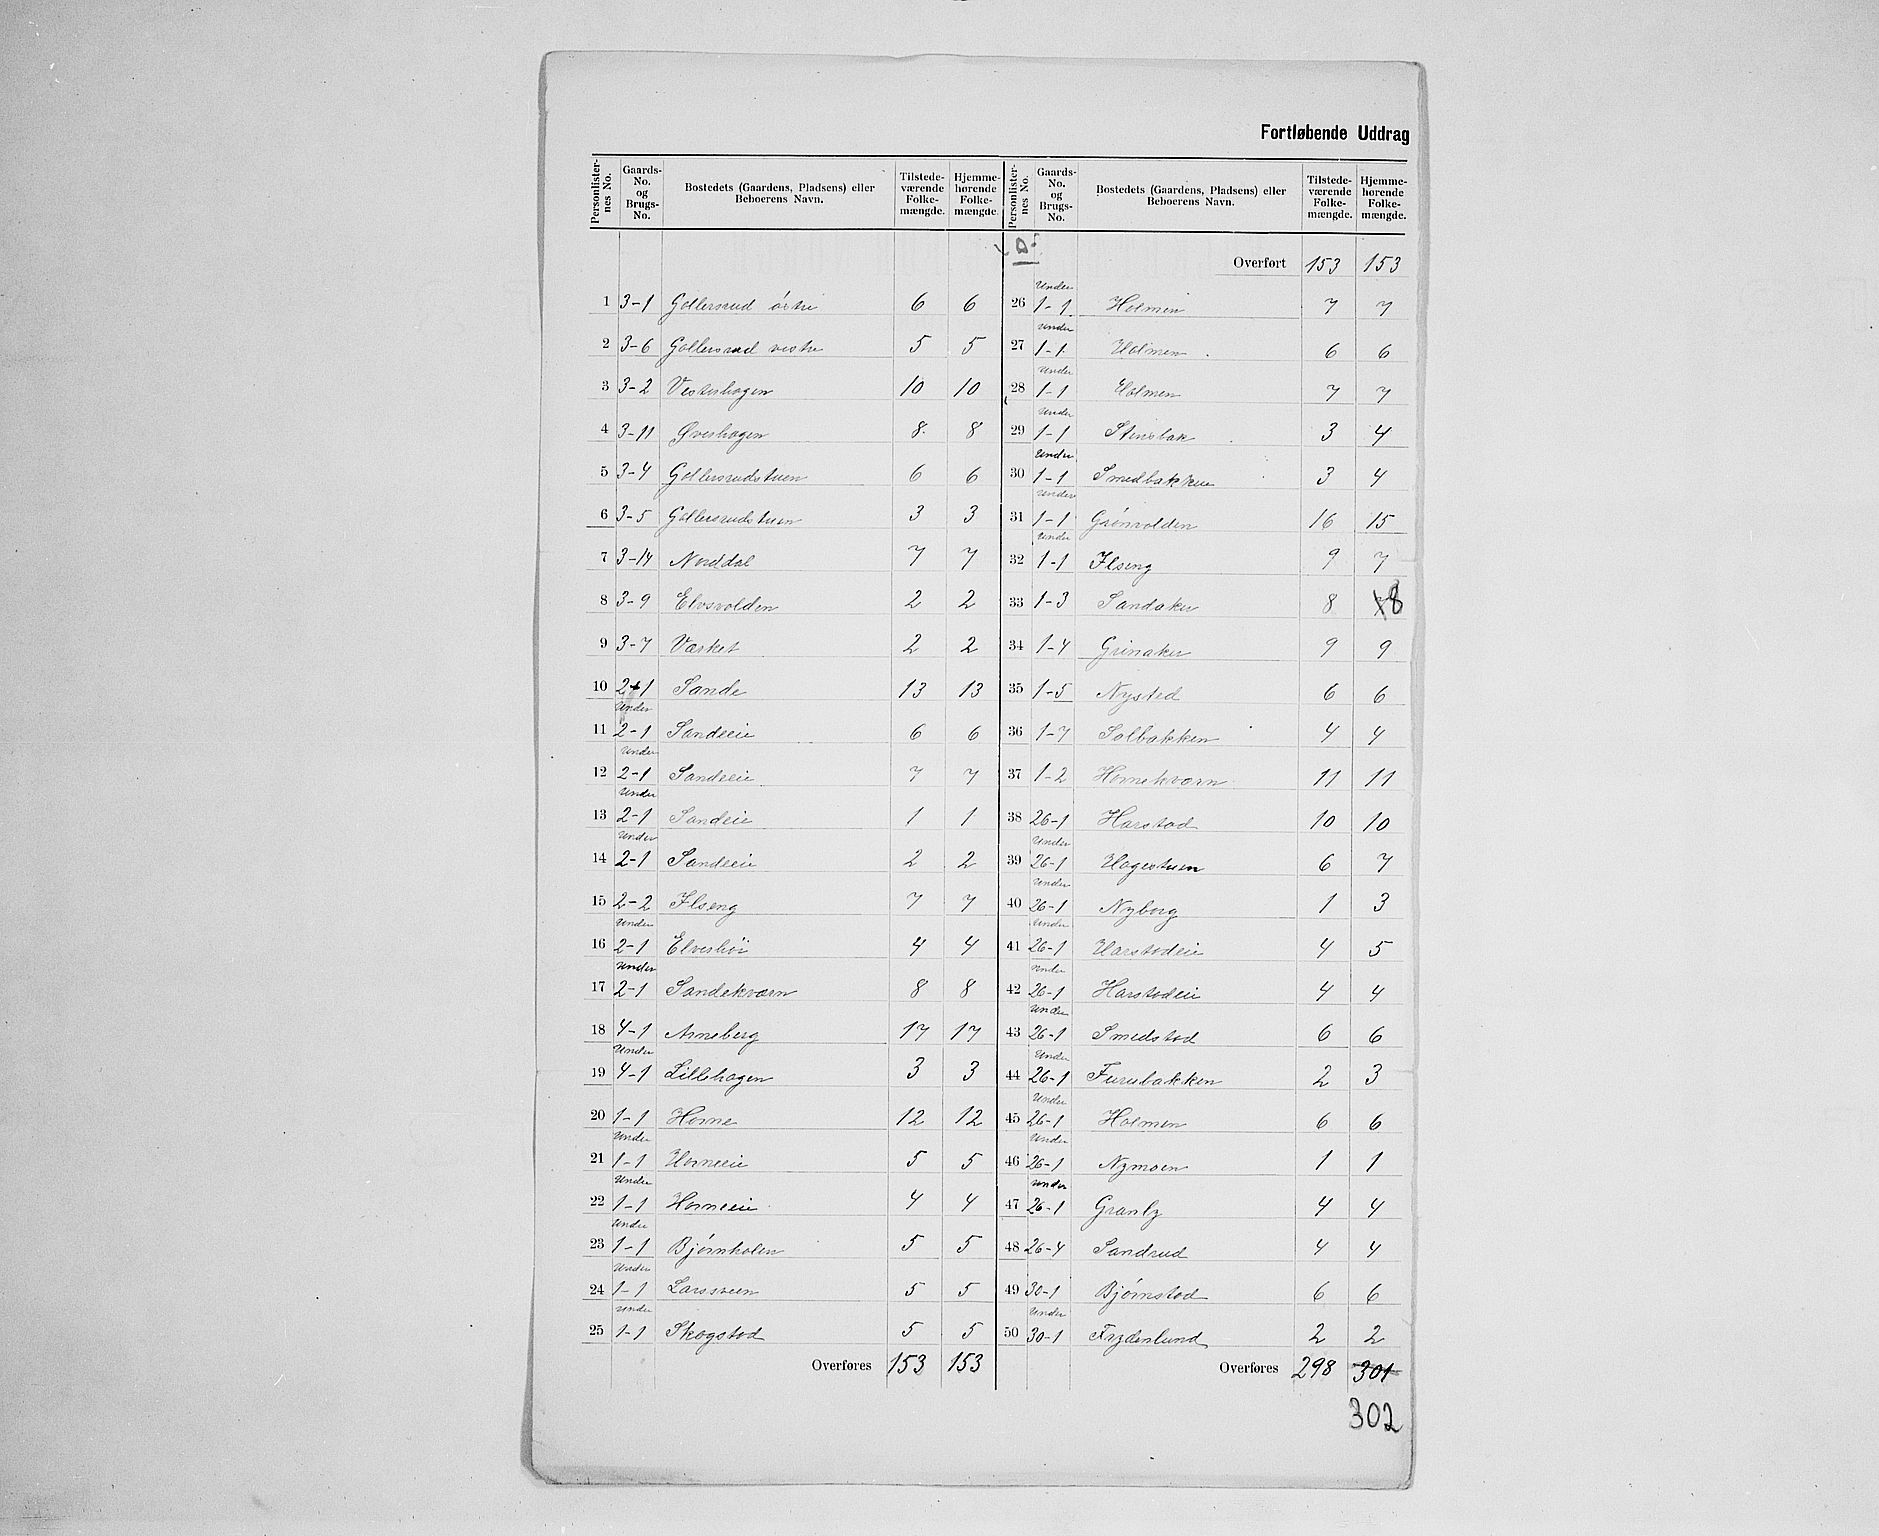 Fortløbende Uddrag
Personlisternes No. Gaards-No. og Brugs-No. Bostedets (Gaardens, Pladsens) eller Beboerens Navn. Tilstedeværende Folkemængde. Hjemmehørende Folkemængde.
1 3-1 Gollersrud östre 6 6
2 3-6 Gollersrud vestre 5 5
3 3-2 Vesterhagen 10 10
4 3-11 Øverhagen 8 8
5 3-4 Gollersrudstuen 6 6
6 3-5 Gollersrudstuen 3 3
7 3-14 Norddal 7 7
8 3-9 Elvsvolden 2 2
9 3-7 Værket 2 2
10 2-1 Sande 13 13
11 Under 2-1 Sandeeie 6 6
12 Under 2-1 Sandeeie 7 7
13 Under 2-1 Sandeie 1 1
14 Under 2-1 Sandeeie 2 2
15 2-2 Ilseng 7 7
16 Under 2-1 Elveshöi 4 4
17 Under 2-1 Sandekværn 8 8
18 4-1 Arneberg 17 17
19 Under 4-1 Lillehagen 3 3
20 1-1 Horne 12 12
21 Under 1-1 Horneeie 5 5
22 Under 1-1 Horneeie 4 4
23 Under 1-1 Bjørnholen 5 5
24 Under 1-1 Larssveen 5 5
25 Under 1-1 Skogstad 5 5
Overføres 153 153
Personlisternes No. Gaards-No. og Brugs-No. Bostedets (Gaardens, Pladsens) eller Beboerens Navn. Tilstedeværende Folkemængde. Hjemmehørende Folkemængde.
Overført 153 153
26 Under 1-1 Holmen 7 7
27 Under 1-1 Holmen 6 6
28 Under 1-1 Holmen 7 7
29 Under 1-1 Stensbak 3 4
30 Under 1-1 Smedbakken 3 4
31 Under 1-1 Grönvolden 16 15
32 Under 1-1 Ilseng 9 7
33 1-3 Sandaker 8 8
34 1-4 Grinaker 9 9
35 1-5 Nysted 6 6
36 1-7 Solbakken 4 4
37 1-2 Hornekværn 11 11
38 26-1 Harstad 10 10
39 Under 26-1 Hagestuen 6 7
40 Under 26-1 Nyborg 1 3
41 Under 26-1 Harstadeie 4 5
42 Under 26-1 Harstadeie 4 4
43 Under 26-1 Smedstad 6 6
44 Under 26-1 Furubakken 2 3
45 Under 26-1 Holmen 6 6
46 Under 26-1 Nymoen 1 1
47 Under 26-1 Granly 4 4
48 26-4 Sandrud 4 4
49 30-1 Bjørnstad 6 6
50 Under 30-1 Frydenlund 2 2
Overføres 298 301
302